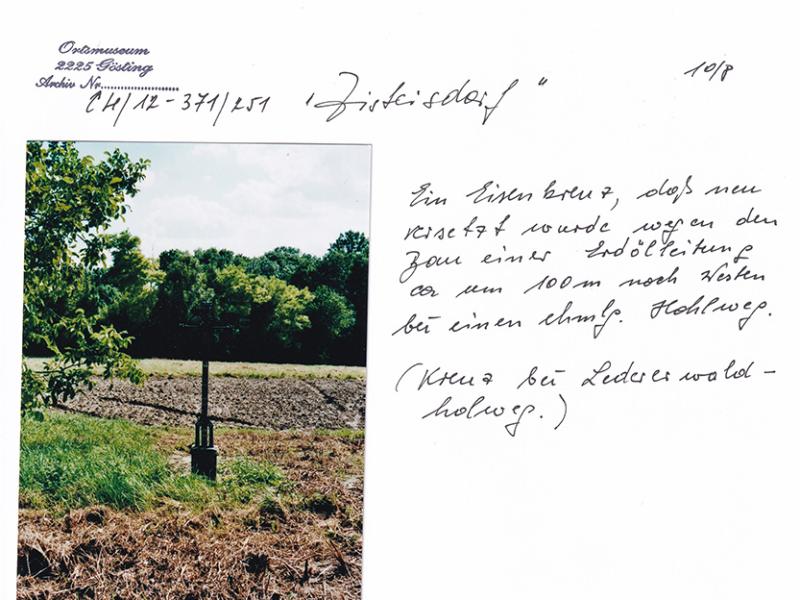 Ortsmuseum
2225 Gösting
Archiv Nr.
CH/12-371/251
"Zisteisdorf"
10/8
Ein Eisenkreuz, daß neu
versetzt wurde wegen den
Bau einer Erdölleitung
ca um 100m nach Westen
bei einen ehmlg. Hohlweg.
(Kreuz bei Ledererwald-
holweg.)